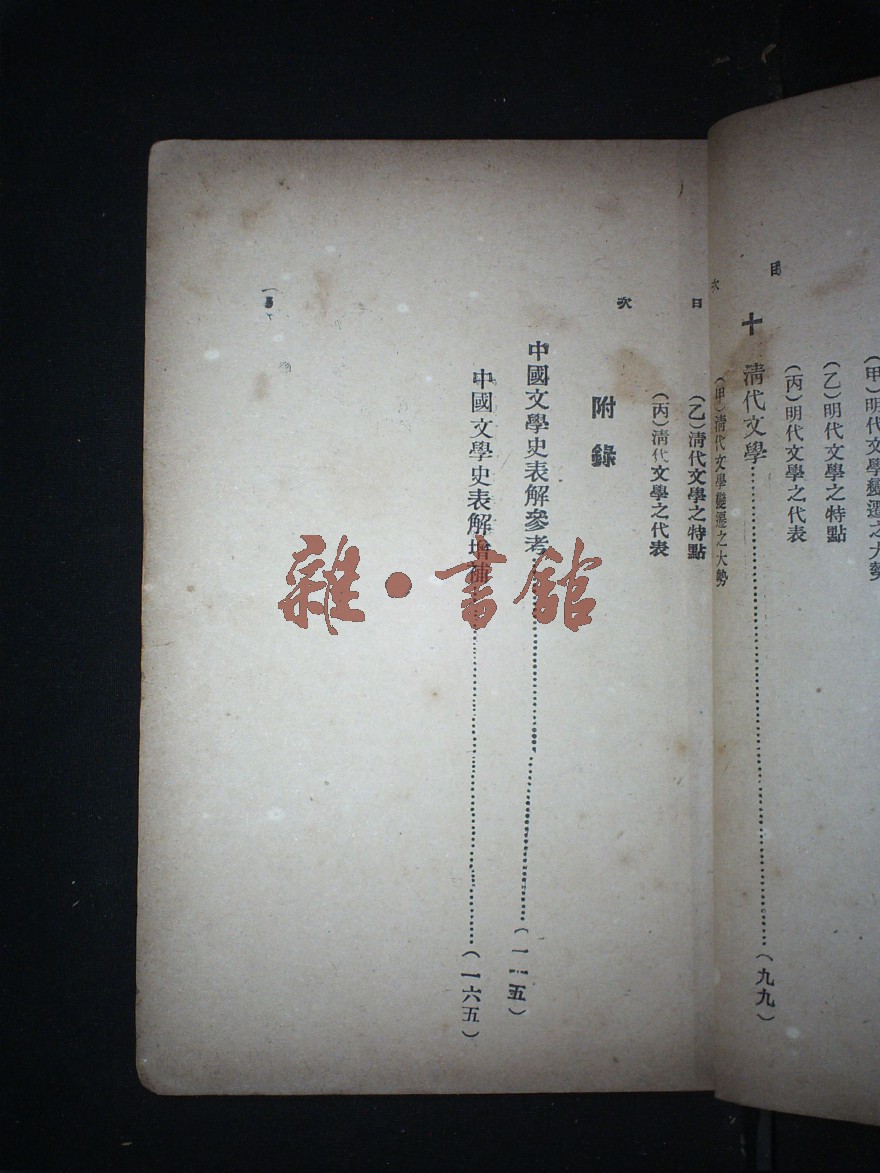 目次
(甲)明代文學變遷之大勢
(乙)明代文學之特點
(丙)明代文學之代表
十 清代文學……(九九)
(甲)清代文學變遷之大勢
(乙)清代文學之特點
(丙)清代文學之代表
目次
附錄
中國文學史表解參考……
中國文學史表解增補……(一六五)
雜·書館